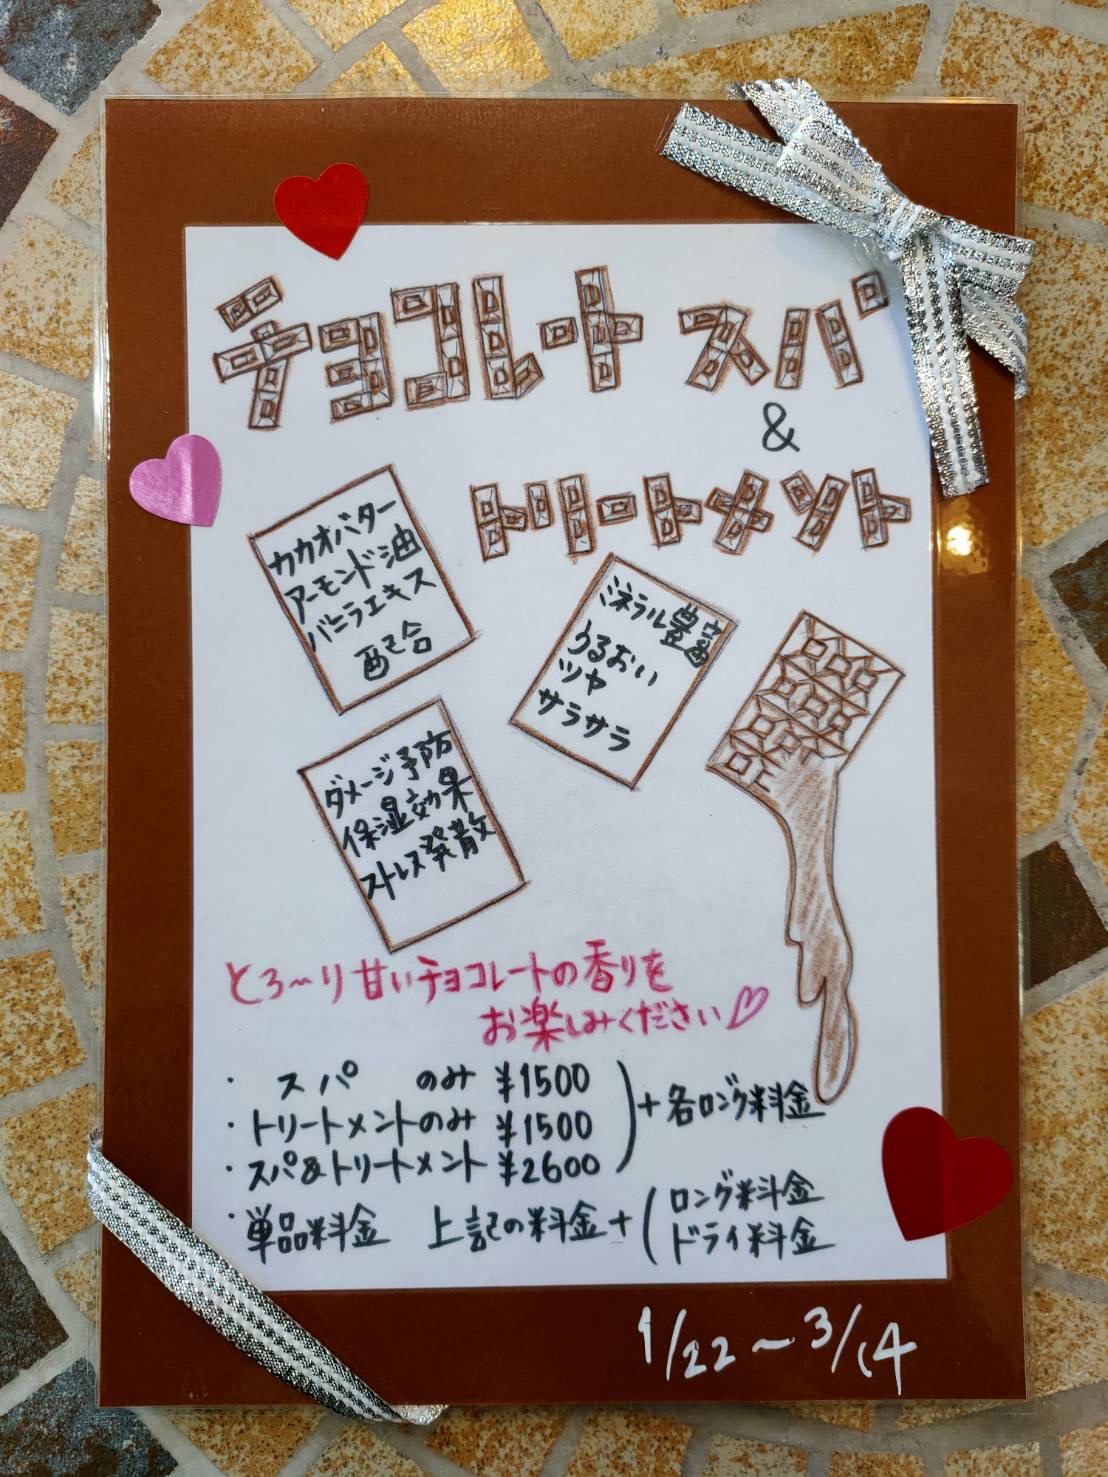 チョコレート スパ
&
トリートメント
カカオバター
アーモンド油
バニラエキス
配合
ミネラル豊富
うるおい
ツヤ
サラサラ
ダメージ予防
保湿効果
ストレス発散
とろ〜り甘いチョコレートの香りを
お楽しみください♡
・ スパ のみ ¥1500
・トリートメントのみ ¥1500
・スパ&トリートメント ¥2600
)+各ロング料金
・単品料金 上記の料金+(ロング料金
ドライ料金
1/22〜3/14